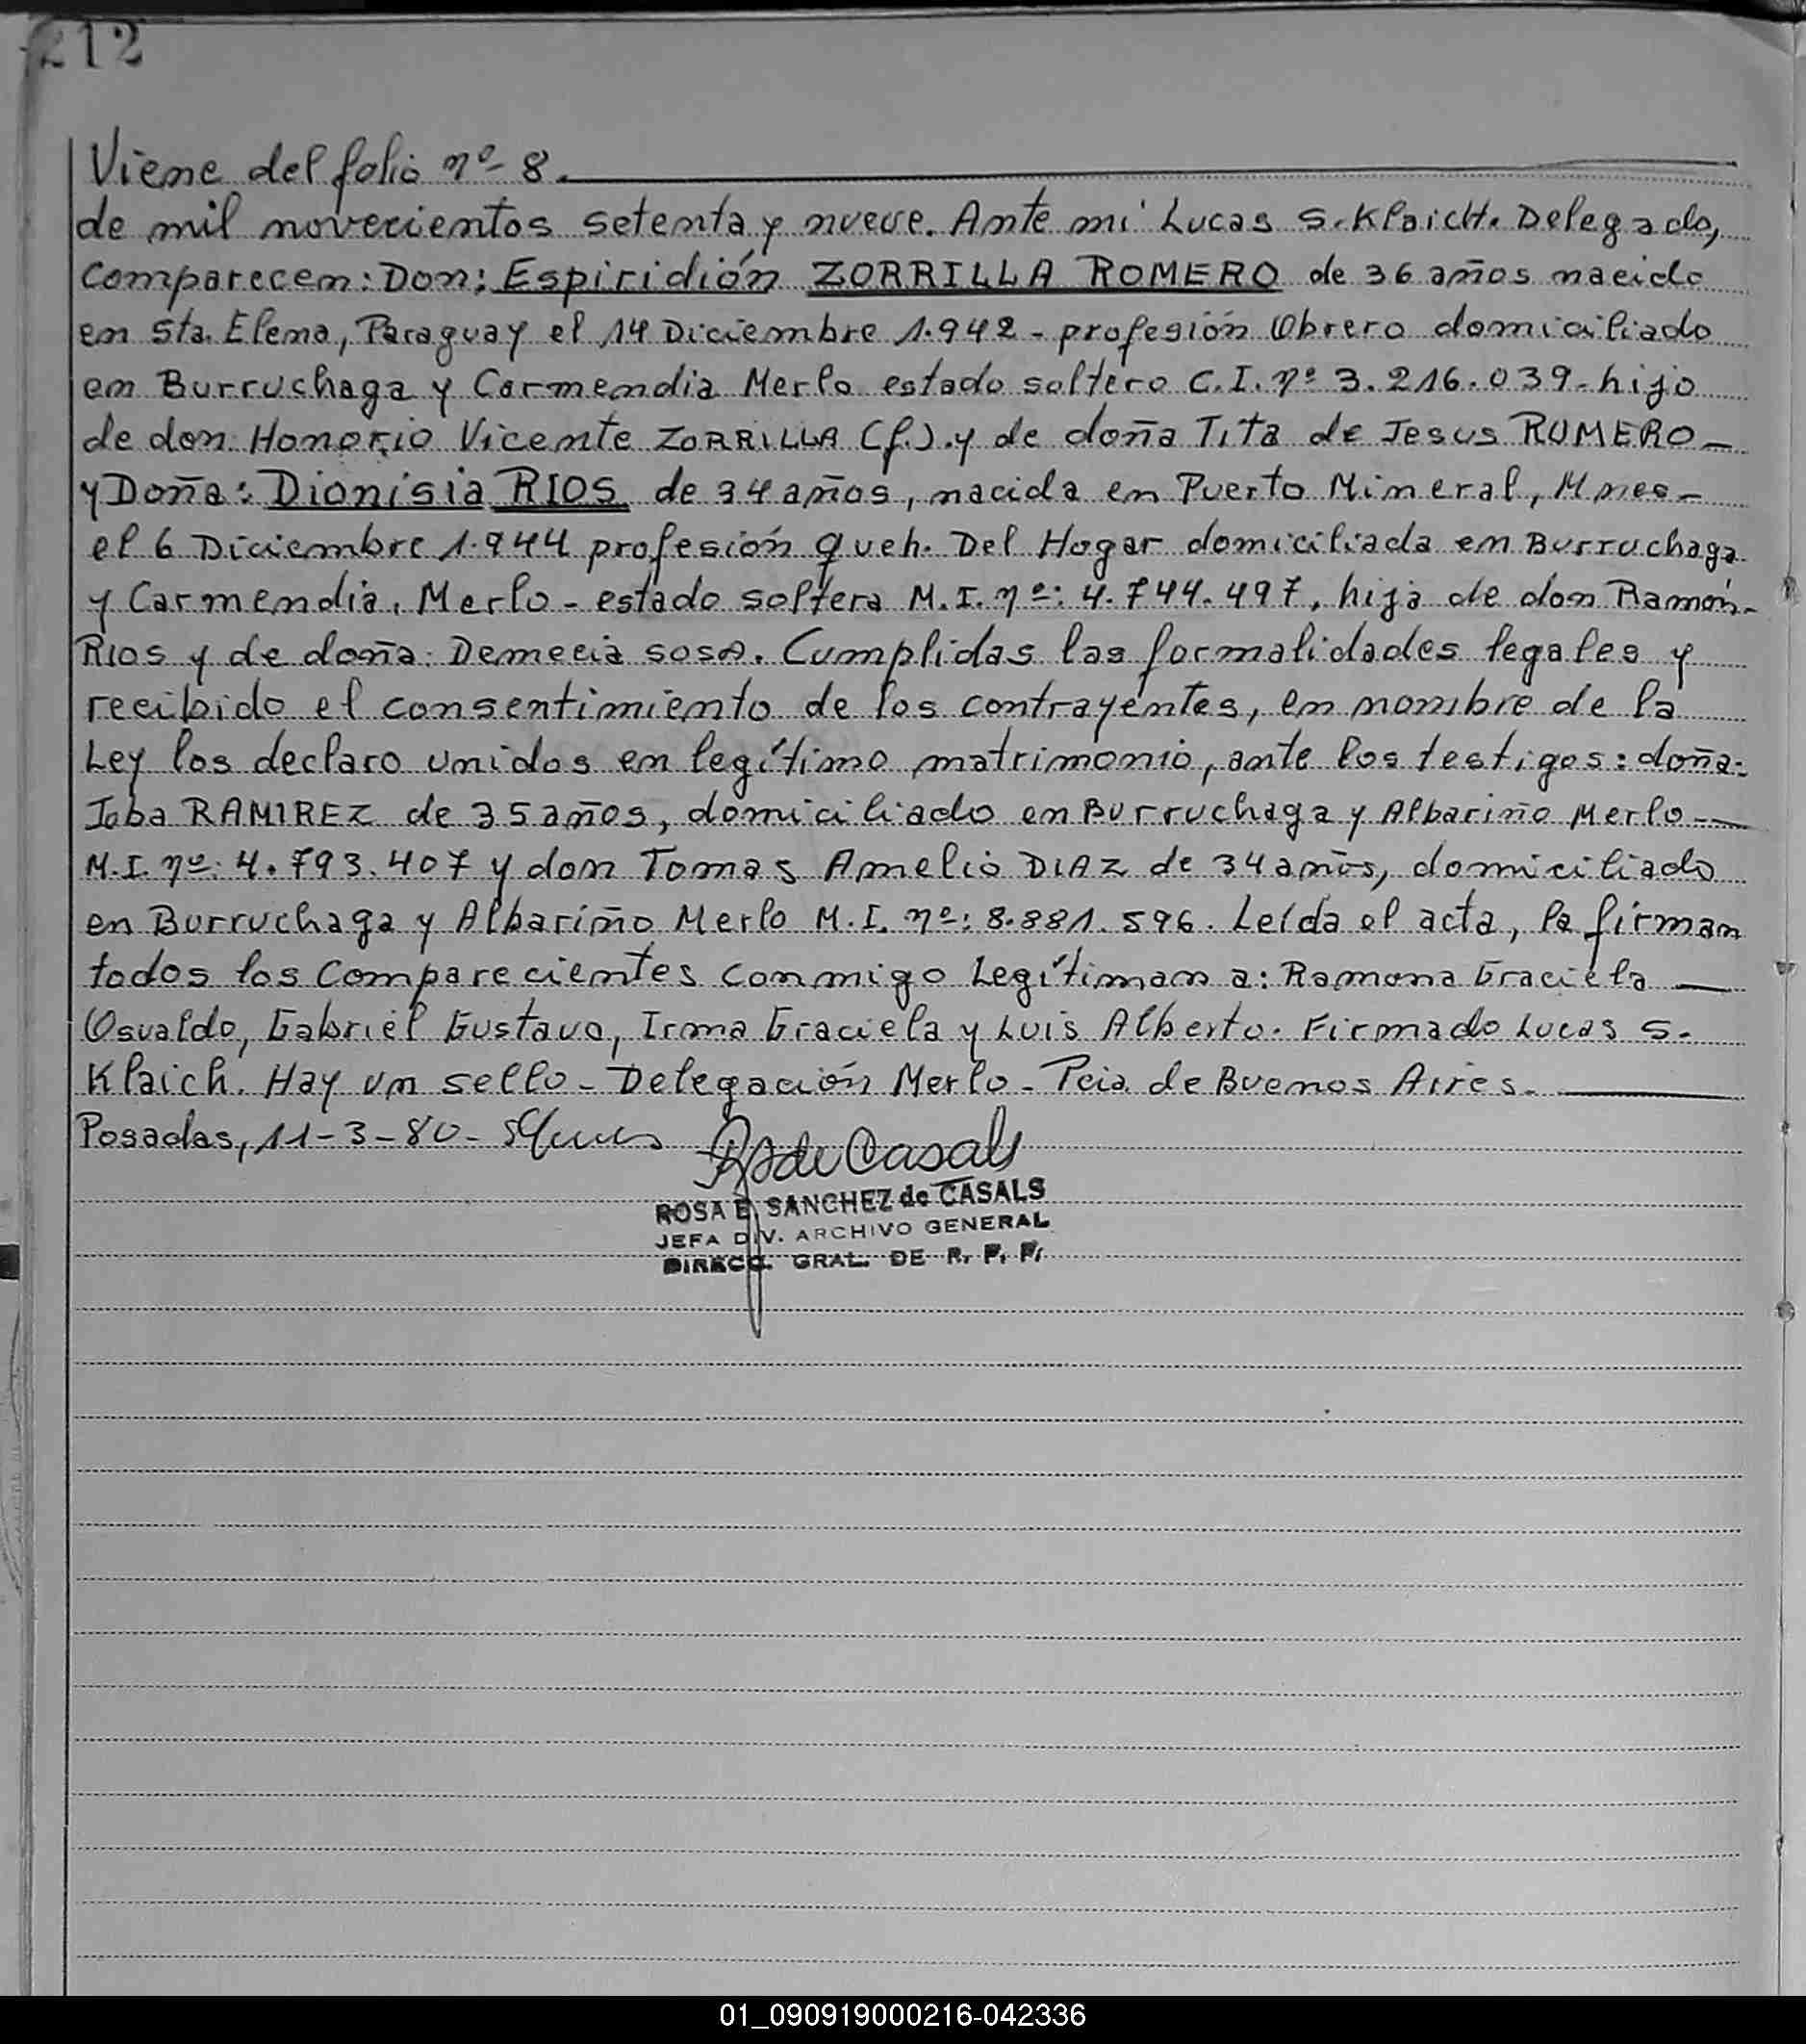 212
Viene del folio nº 8.
de mil novecientos setenta y nueve. Ante mi Lucas S. Klaich. Delegado,
Comparecen: Don: Espiridión ZORRILLA ROMERO de 36 años nacido
en Sta. Elena, Paraguay el 14 Diciembre 1.942 - profesión Obrero domiciliado
en Burruchaga y Carmendia Merlo estado soltero C.I. nº 3.216.039 - hijo
de don Honorio Vicente ZORRILLA (f.) y de doña Tita de Jesus ROMERO -
y Doña: Dionisia RIOS de 34 años, nacida en Puerto Mineral, Mnes -
el 6 Diciembre 1.944 profesión queh. Del Hogar domiciliada en Burruchaga
y Carmendia, Merlo - estado soltera M.I. nº: 4.744.497, hija de don Ramón -
RIOS y de doña: Demecia SOSA. Cumplidas las formalidades legales y
recibido el consentimiento de los contrayentes, en nombre de la
Ley los declaro unidos en legítimo matrimonio, ante los testigos: doña:
Joba RAMIREZ de 35 años, domiciliado en Burruchaga y Albariño Merlo -
M.I. nº: 4.793.407 y don Tomas Amelio DIAZ de 34 años, domiciliado
en Burruchaga y Albariño Merlo M.I. nº: 8.881.596. Leída el acta, la firman
todos los Comparecientes conmigo Legítiman a: Ramona Graciela
Osvaldo, Gabriel Gustavo, Irma Graciela y Luis Alberto. Firmado Lucas S.
Klaich. Hay un sello - Delegación Merlo - Pcia. de Buenos Aires.
Posadas, 11-3-80 -
RS de Casals
ROSA E. SANCHEZ de CASALS
JEFA DIV. ARCHIVO GENERAL
DIRECC. GRAL. DE R. P. P.
01_090919000216-042336